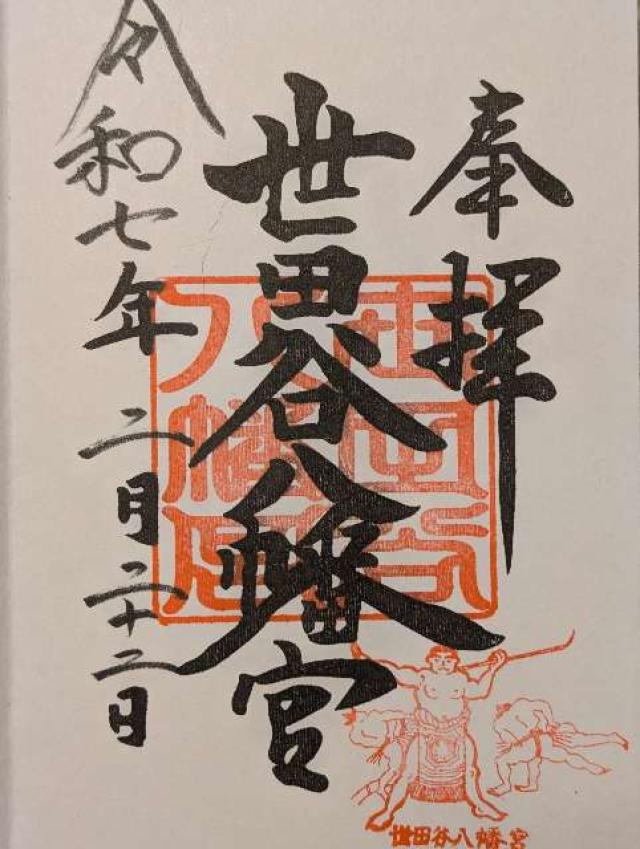 奉拝
世田谷八幡宮
令和七年二月二十二日
世田谷
八幡宮
世田谷八幡宮